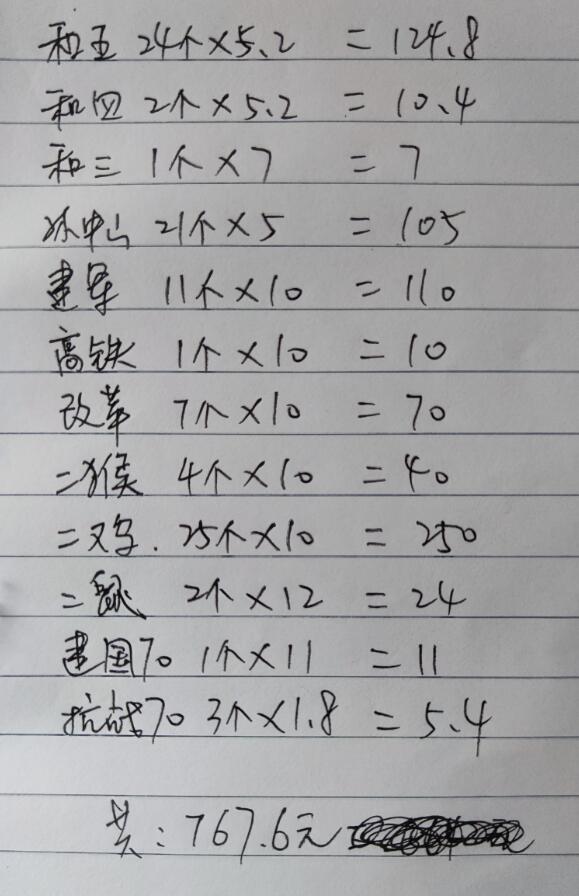 和五 24个×5.2 = 124.8
和四 2个×5.2 = 10.4
和三 1个×7 = 7
孙中山 21个×5 = 105
建军 11个×10 = 110
高铁 1个×10 = 10
改革 7个×10 = 70
二猴 4个×10 = 40
二鸡. 25个×10 = 250
二鼠 2个×12 = 24
建国70 1个×11 = 11
抗战70 3个×1.8 = 5.4
共:767.6元